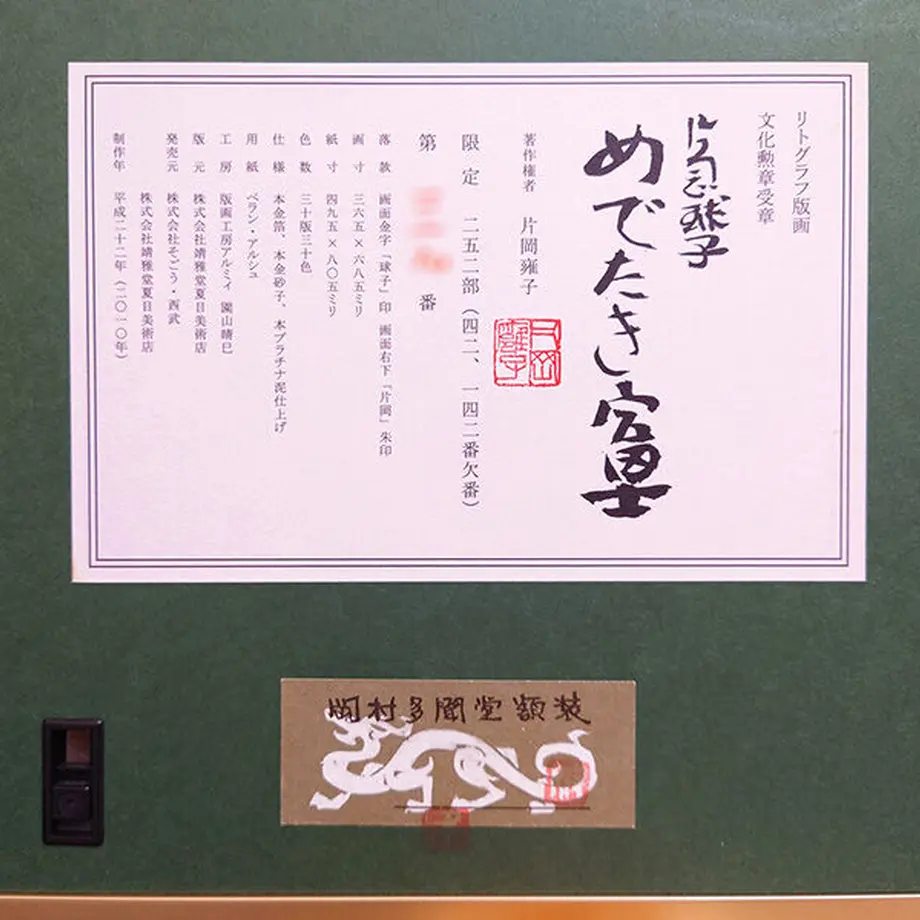 リトグラフ版画
文化勲章受章
片岡球子
めでたき富士
著作権者　片岡雍子
片岡雍子
限定　二五二部（四二、一四二番欠番）
第　番
落款　画面金字「球子」印 画面右下「片岡」朱印
画寸　三六五×六八五ミリ
紙寸　四九五×八〇五ミリ
色数　三十版三十色
仕様　本金箔、本金砂子、本プラチナ泥仕上げ
用紙　ベラン・アルシュ
工房　版画工房アルミィ 園山晴巳
版元　株式会社靖雅堂夏目美術店
発売元　株式会社そごう・西武
株式会社靖雅堂夏目美術店
制作年　平成二十二年（二〇一〇年）
岡村多聞堂額装